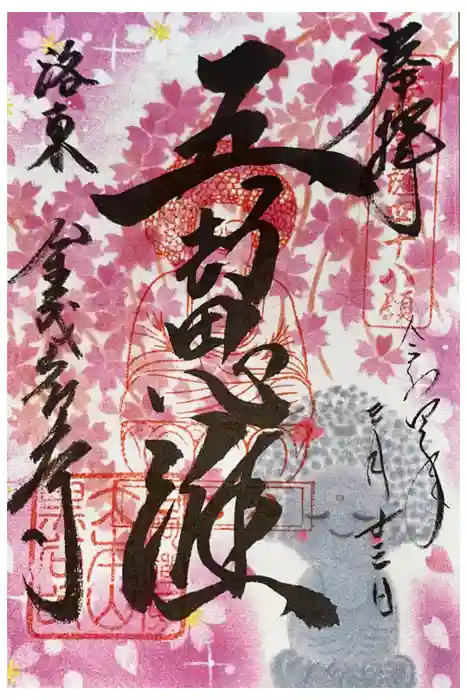 奉拝
令和四年
三月廿三日
五劫思惟
洛東
金戒光明寺
大本山